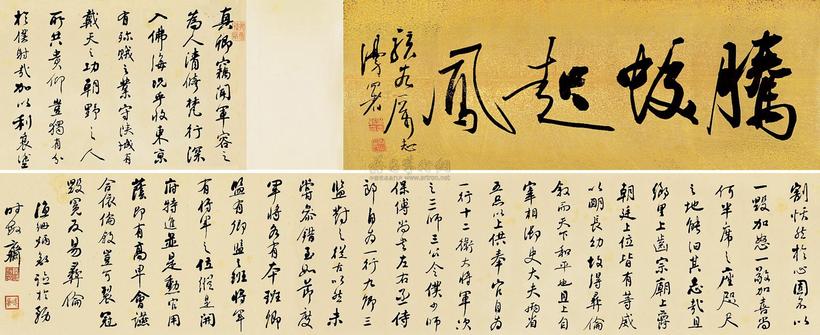 騰蛟起鳳
漫署
真卿竊聞軍容之
為人清修梵行深
入佛海況乎收東京
有殄賊之業守陝城有
戴天之功朝野之人
所共貴仰豈獨有分
於僕射哉加以利衰塗
割恬然於心固不以
一毀加怒一敬加喜尚
何半席之座咫尺
之地能汩其志哉且
鄉里上齒宗廟上爵
朝廷上位皆有等威
以明長幼故得彝倫
敘而天下和平也且上自
宰相御史大夫兩省
五品以上供奉官自為
一行十二衛大將軍次
之三師三公令僕少師
保傅尚書左右丞侍
郎自為一行九卿三
監對之從古以然未
嘗參錯至如節度
軍將各有本班卿
監有卿監之班將軍
有將軍之位縱是開
府特進並是勳官用
蔭即有高卑會讌
合依倫敘豈可裂冠
毀冕反易彝倫
臨於務
時敏齋
www.artron.net